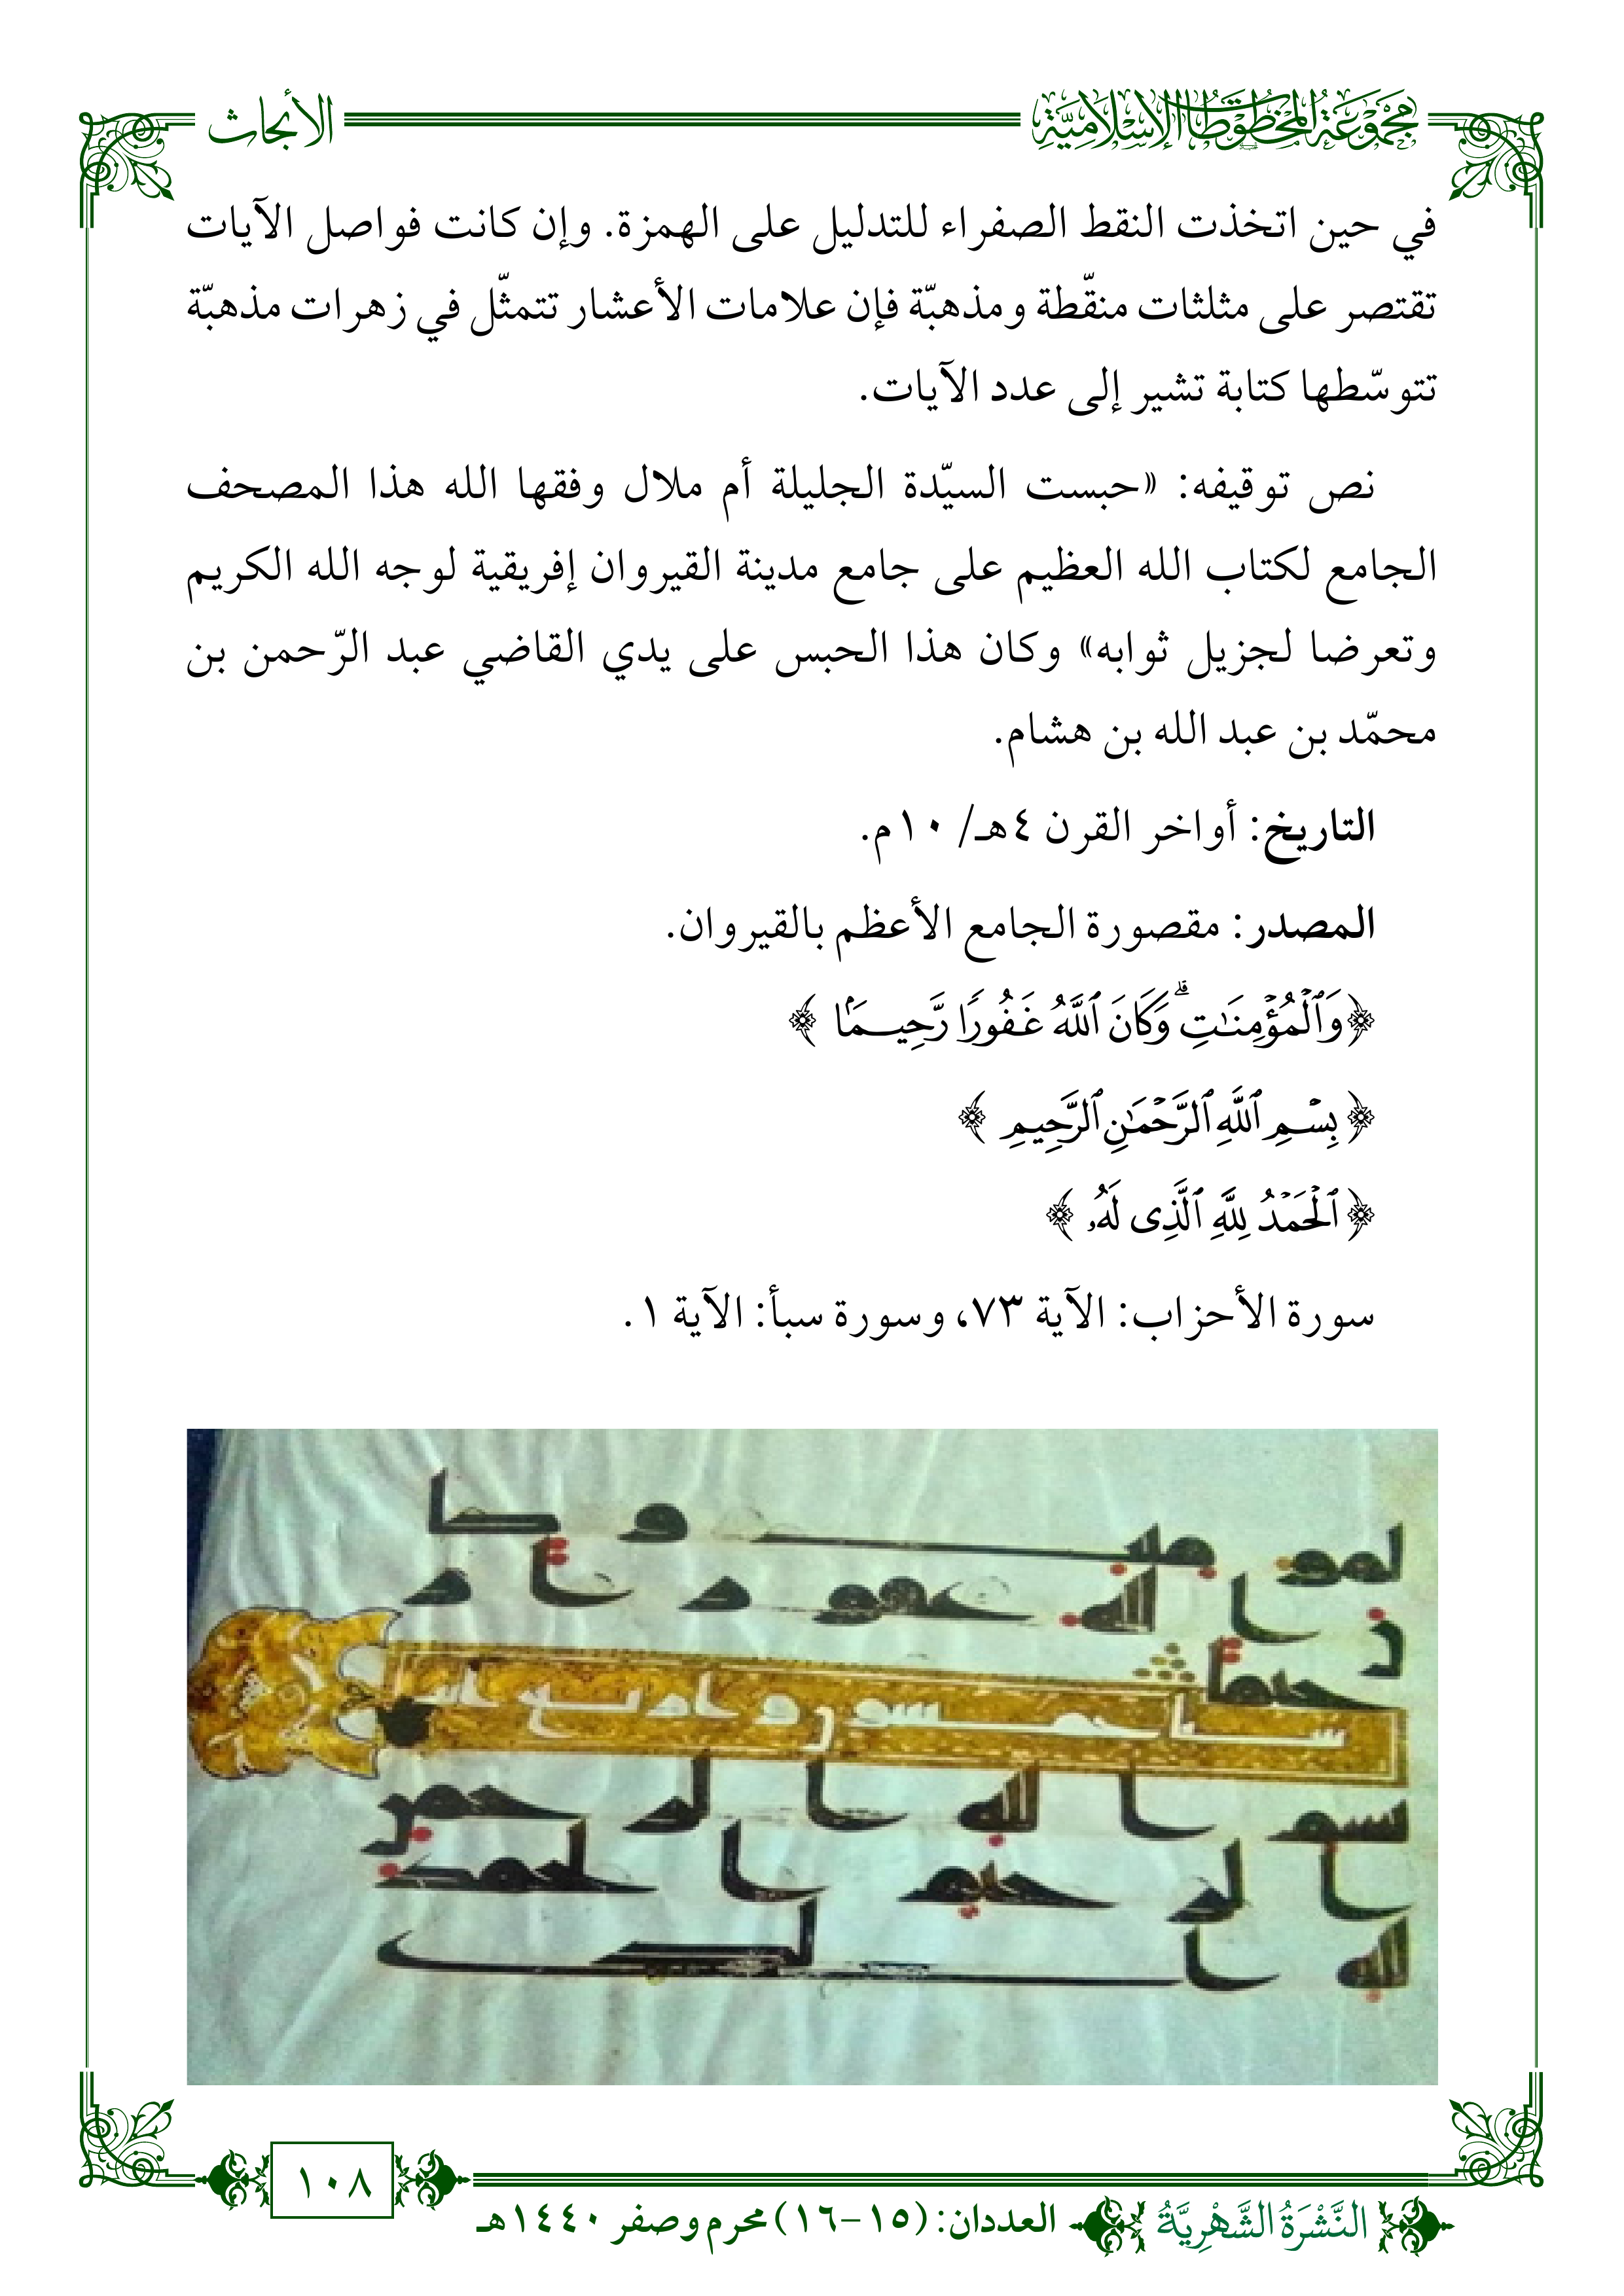 مَجْمُوعَةُ المَخْطُوطَاتِ الإِسْلَامِيَّةِ
الأبحاث
في حين اتخذت النقط الصفراء للتدليل على الهمزة. وإن كانت فواصل الآيات
تقتصر على مثلثات منقّطة ومذهبّة فإن علامات الأعشار تتمثّل في زهرات مذهبّة
تتوسّطها كتابة تشير إلى عدد الآيات.
نص توقيفه: «حبست السيّدة الجليلة أم ملال وفقها الله هذا المصحف
الجامع لكتاب الله العظيم على جامع مدينة القيروان إفريقية لوجه الله الكريم
وتعرضا لجزيل ثوابه» وكان هذا الحبس على يدي القاضي عبد الرّحمن بن
محمّد بن عبد الله بن هشام.
التاريخ: أواخر القرن ٤هـ/ ١٠م.
المصدر: مقصورة الجامع الأعظم بالقيروان.
﴿وَٱلْمُؤْمِنَـٰتِ ۗ وَكَانَ ٱللَّهُ غَفُورًا رَّحِيـمَۢا ﴾
﴿ بِسْمِ ٱللَّهِ ٱلرَّحْمَـٰنِ ٱلرَّحِيمِ ﴾
﴿ ٱلْحَمْدُ لِلَّهِ ٱلَّذِى لَهُۥ ﴾
سورة الأحزاب: الآية ٧٣، وسورة سبأ: الآية ١.
١٠٨
النَّشْرَةُ الشَّهْرِيَّةُ
العددان: (١٥-١٦) محرم وصفر ١٤٤٠هـ